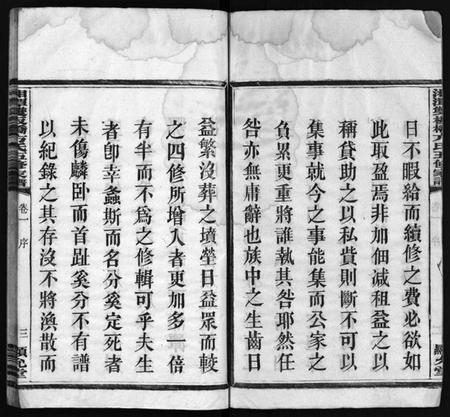 日不暇給而續修之費必欲如
此取盈焉非加佃減租益之以
稱貸助之以私貲則斷不可以
集事就今之事能集而公家之
食界更重將誰執其咎耶然任
咎亦無庸辭也族中之生齒日
益繁沒葬之墳塋日益眾而較
之四修所增入者更加多一倍
有半而不為之修輯可乎夫生
卽幸螽斯而名分奚定死者
未傷麟卧而首趾奚分不有譜
以紀錄之其存沒不將渙散而
卷一 序
三